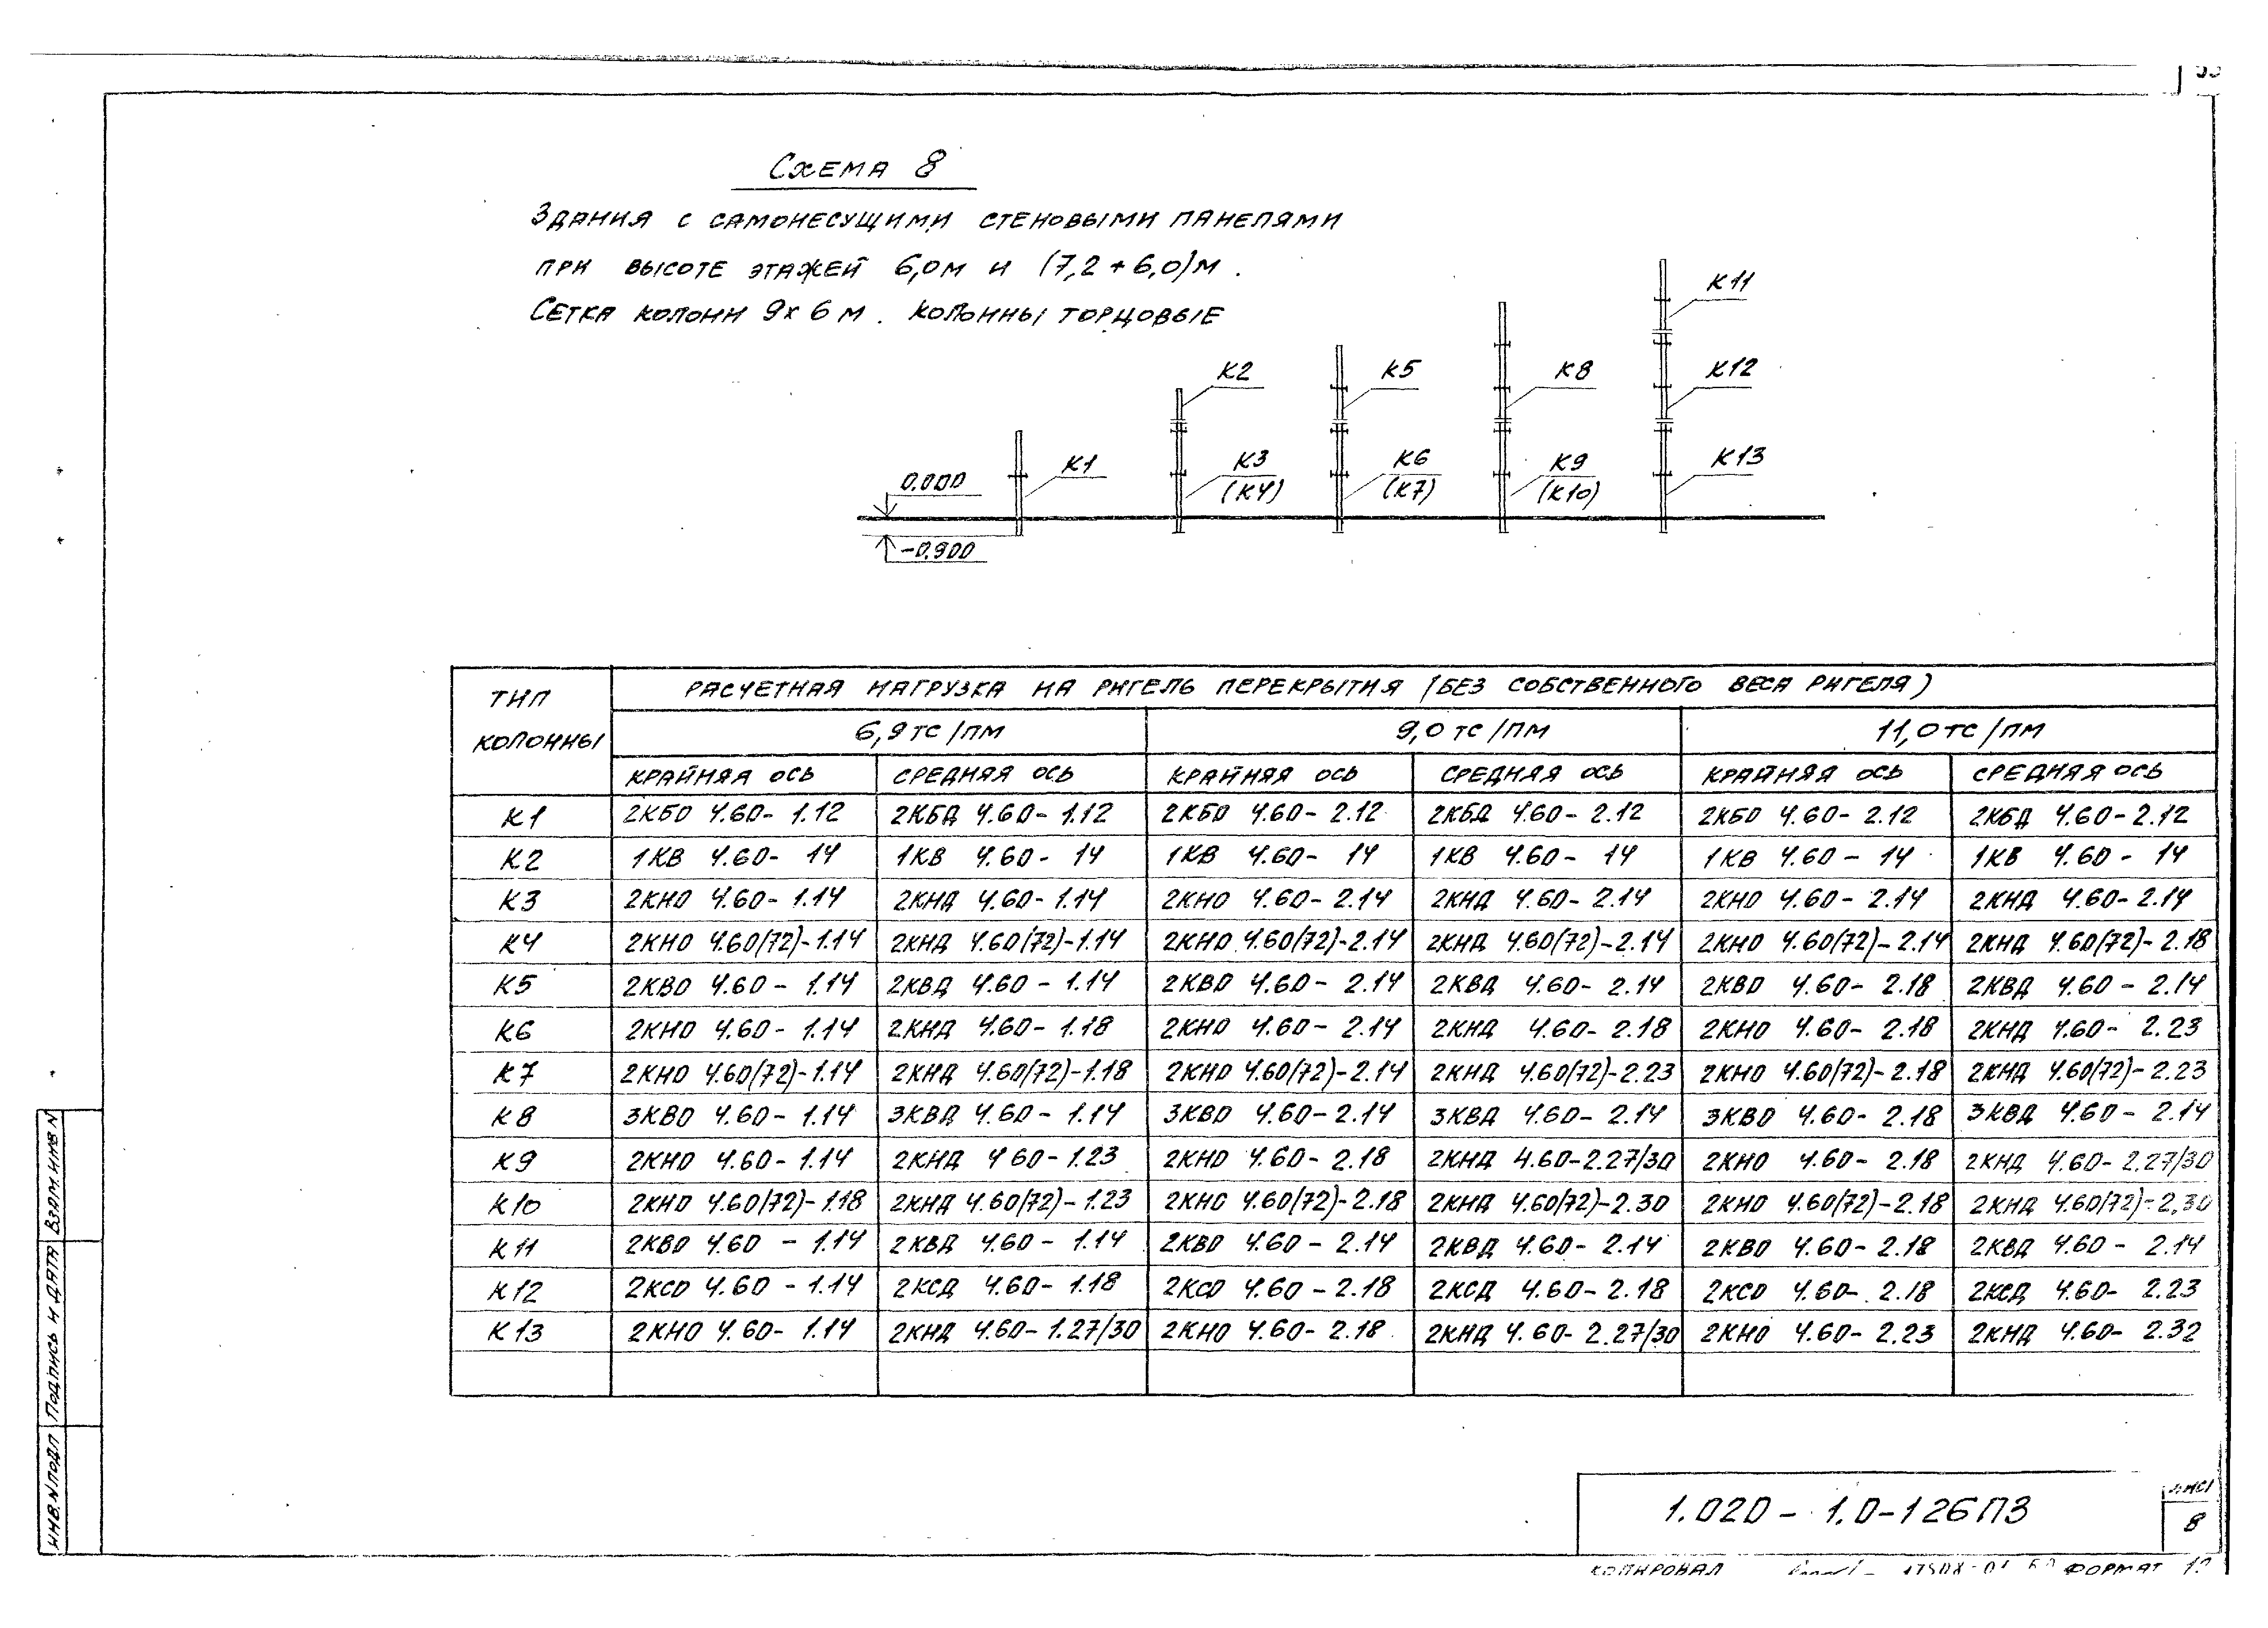 Схема 8
Здания с самонесущими стеновыми панелями
при высоте этажей 6,0м и (7,2+6,0)м.
Сетка колонн 9х6 м. Колонны торцовые
К1
К2
К3
(К4)
К5
К6
(К7)
К8
К9
(К10)
К11
К12
К13
0.000
-0.900
Тип колонны | Расчетная нагрузка на ригель перекрытия (без собственного веса ригеля)
6,9тс/пм | 9,0тс/пм | 11,0тс/пм
крайняя ось | средняя ось | крайняя ось | средняя ось | крайняя ось | средняя ось
К1 | 2КБО 4.60-1.12 | 2КБД 4.60-1.12 | 2КБО 4.60-2.12 | 2КБД 4.60-2.12 | 2КБО 4.60-2.12 | 2КБД 4.60-2.12
К2 | 1КВ 4.60-14 | 1КВ 4.60-14 | 1КВ 4.60-14 | 1КВ 4.60-14 | 1КВ 4.60-14 | 1КВ 4.60-14
К3 | 2КНО 4.60-1.14 | 2КНД 4.60-1.14 | 2КНО 4.60-2.14 | 2КНД 4.60-2.14 | 2КНО 4.60-2.14 | 2КНД 4.60-2.14
К4 | 2КНО 4.60(72)-1.14 | 2КНД 4.60(72)-1.14 | 2КНО 4.60(72)-2.14 | 2КНД 4.60(72)-2.14 | 2КНО 4.60(72)-2.14 | 2КНД 4.60(72)-2.18
К5 | 2КВО 4.60-1.14 | 2КВД 4.60-1.14 | 2КВО 4.60-2.14 | 2КВД 4.60-2.14 | 2КВО 4.60-2.18 | 2КВД 4.60-2.14
К6 | 2КНО 4.60-1.14 | 2КНД 4.60-1.18 | 2КНО 4.60-2.14 | 2КНД 4.60-2.18 | 2КНО 4.60-2.18 | 2КНД 4.60-2.23
К7 | 2КНО 4.60(72)-1.14 | 2КНД 4.60(72)-1.18 | 2КНО 4.60(72)-2.14 | 2КНД 4.60(72)-2.23 | 2КНО 4.60(72)-2.18 | 2КНД 4.60(72)-2.23
К8 | 3КВО 4.60-1.14 | 3КВД 4.60-1.14 | 3КВО 4.60-2.14 | 3КВД 4.60-2.14 | 3КВО 4.60-2.18 | 3КВД 4.60-2.14
К9 | 2КНО 4.60-1.14 | 2КНД 4 60-1.23 | 2КНО 4.60-2.18 | 2КНД 4.60-2.27/30 | 2КНО 4.60-2.18 | 2КНД 4.60-2.27/30
К10 | 2КНО 4.60(72)-1.18 | 2КНД 4.60(72)-1.23 | 2КНО 4.60(72)-2.18 | 2КНД 4.60(72)-2.30 | 2КНО 4.60(72)-2.18 | 2КНД 4.60(72)-2.30
К11 | 2КВО 4.60-1.14 | 2КВД 4.60-1.14 | 2КВО 4.60-2.14 | 2КВД 4.60-2.14 | 2КВО 4.60-2.18 | 2КВД 4.60-2.14
К12 | 2КСО 4.60-1.14 | 2КСД 4.60-1.18 | 2КСО 4.60-2.18 | 2КСД 4.60-2.18 | 2КСО 4.60-2.18 | 2КСД 4.60-2.23
К13 | 2КНО 4.60-1.14 | 2КНД 4.60-1.27/30 | 2КНО 4.60-2.18 | 2КНД 4.60-2.27/30 | 2КНО 4.60-2.23 | 2КНД 4.60-2.32
Взам.инв N
Подпись и дата
Инв.N подл
1.020-1.0-126ПЗ
8
Копировал
Формат